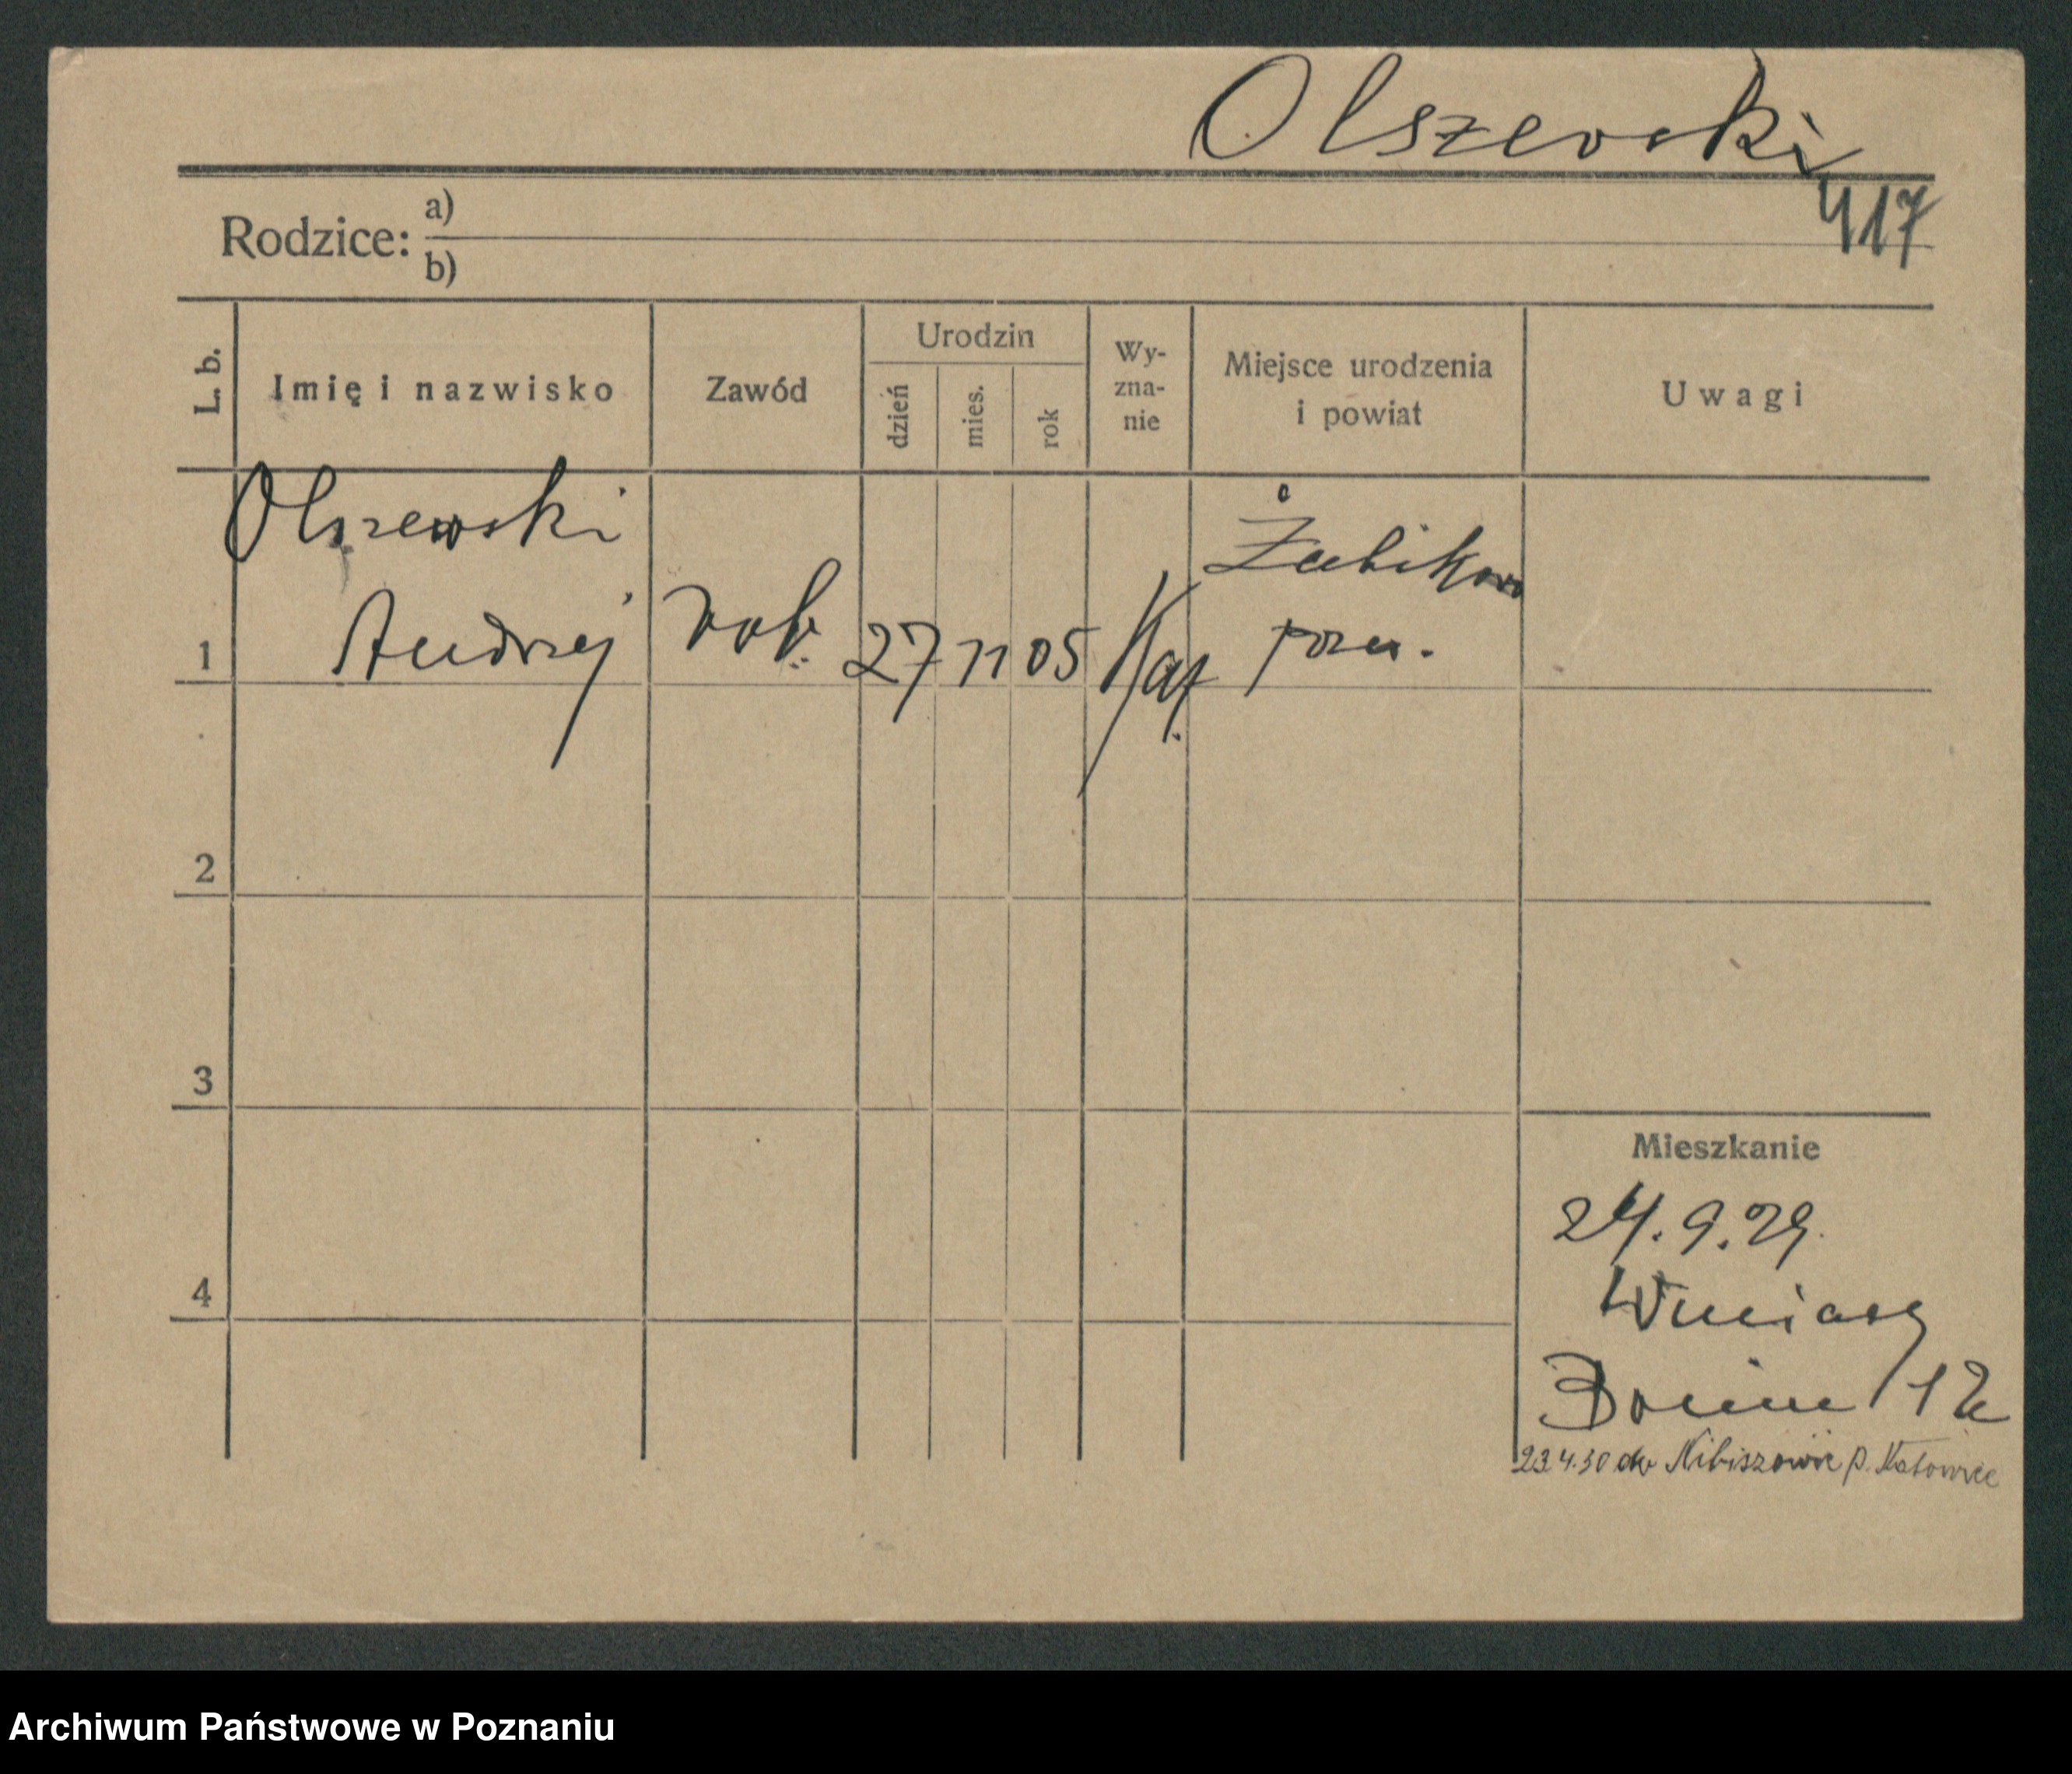 Olszewski
417
Rodzice: a)
b)
L. b.
Imię i nazwisko
Zawód
Urodzin
dzień
mies.
rok
Wy-
zna-
nie
Miejsce urodzenia
i powiat
Uwagi
Olszewski
Andrzej
rob.
27 11 05
Kat.
Żabikowo
pozn.
1
2
3
4
Mieszkanie
24.9.29.
12
23.4.30 do p. Katowice
Archiwum Państwowe w Poznaniu